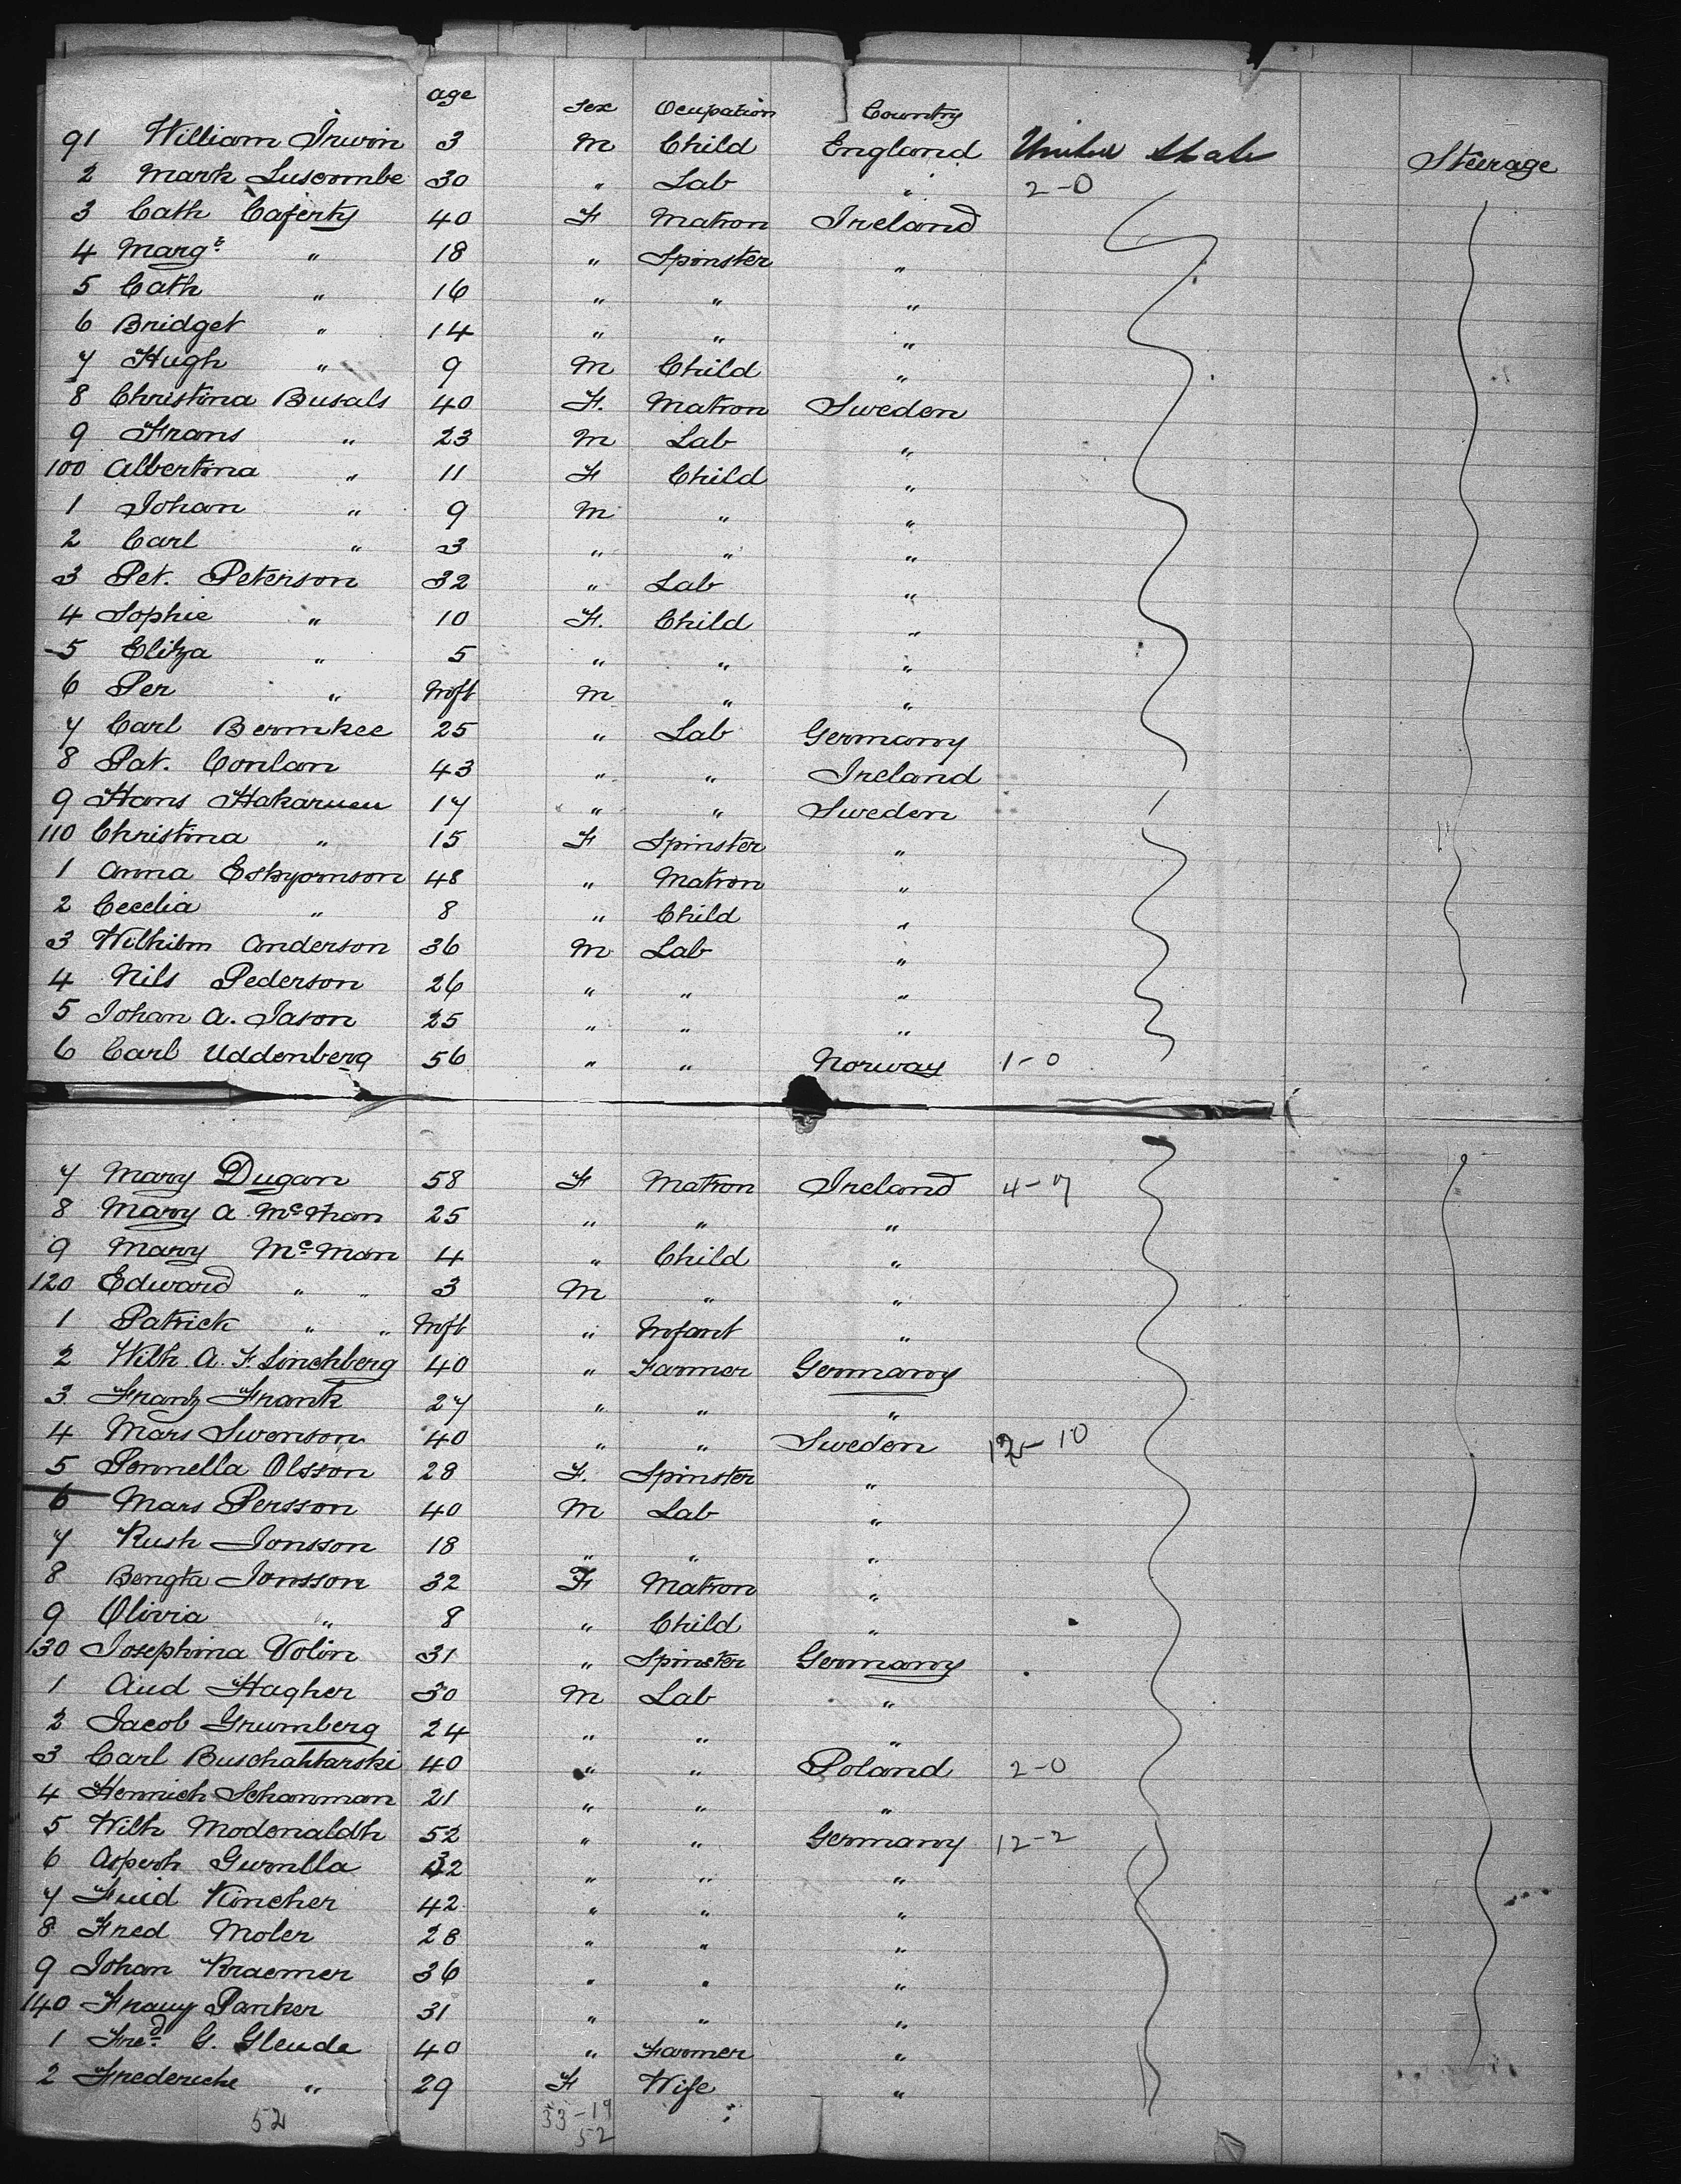 age Sex Ocupation Country
91 William Irwin 3 M Child England United State Steerage
2 Mark Luscombe 30 " Lab " 2-0
3 Cath Caferty 40 F Matron Ireland
4 Margt " 18 " Spinster "
5 Cath " 16 " " "
6 Bridget " 14 " " "
7 Hugh " 9 M Child "
8 Christina Busals 40 F. Matron Sweden
9 Frans " 23 M Lab "
100 Albertina " 11 F Child "
1 Johan " 9 M " "
2 Carl " 3 " " "
3 Pet. Peterson 32 " Lab "
4 Sophie " 10 F. Child "
5 Elitza " 5 " " "
6 Per " Inft M " "
7 Carl Bermkee 25 " Lab Germany
8 Pat. Conlan 43 " " Ireland
9 Hans Hakaruen 17 " " Sweden
110 Christina " 15 F Spinster "
1 Anna Eskyornson 48 " Matron "
2 Cecelia " 8 " Child "
3 Wilhilm Anderson 36 M Lab "
4 Nils Pederson 26 " " "
5 Johan A. Jason 25 " " "
6 Carl Uddenberg 56 " " Norway 1-0
7 Mary Dugan 58 F Matron Ireland 4-7
8 Mary A McMan 25 " " "
9 Mary McMan 4 " Child "
120 Edward " " 3 M " "
1 Patrick " " Inft " Infant "
2 Wilh A. F. Linchberg 40 " Farmer Germany
3 Frantz Frank 27 " " "
4 Mars Swenson 40 " " Sweden 12-10
5 Pennella Olsson 28 F. Spinster "
6 Mars Persson 40 M Lab "
7 Rush Jonsson 18 " " "
8 Bengta Jonsson 32 F Matron "
9 Olivia " 8 " Child "
130 Josephina Volin 31 " Spinster Germany
1 Aud Hagher 30 M Lab "
2 Jacob Grumberg 24 " " "
3 Carl Buschahtarski 40 " " Poland 2-0
4 Hennich Schanman 21 " " "
5 Wilh Modenaldh 52 " " Germany 12-2
6 Asperh Gurnlla 32 " " "
7 Kincher 42 " " "
8 Fred Moler 28 " " "
9 Johan Kraemer 36 " " "
140 Parker 31 " " "
1 Fred G. Gleude 40 " Farmer "
2 Frederiche " 29 F Wife "
52 33-19
52